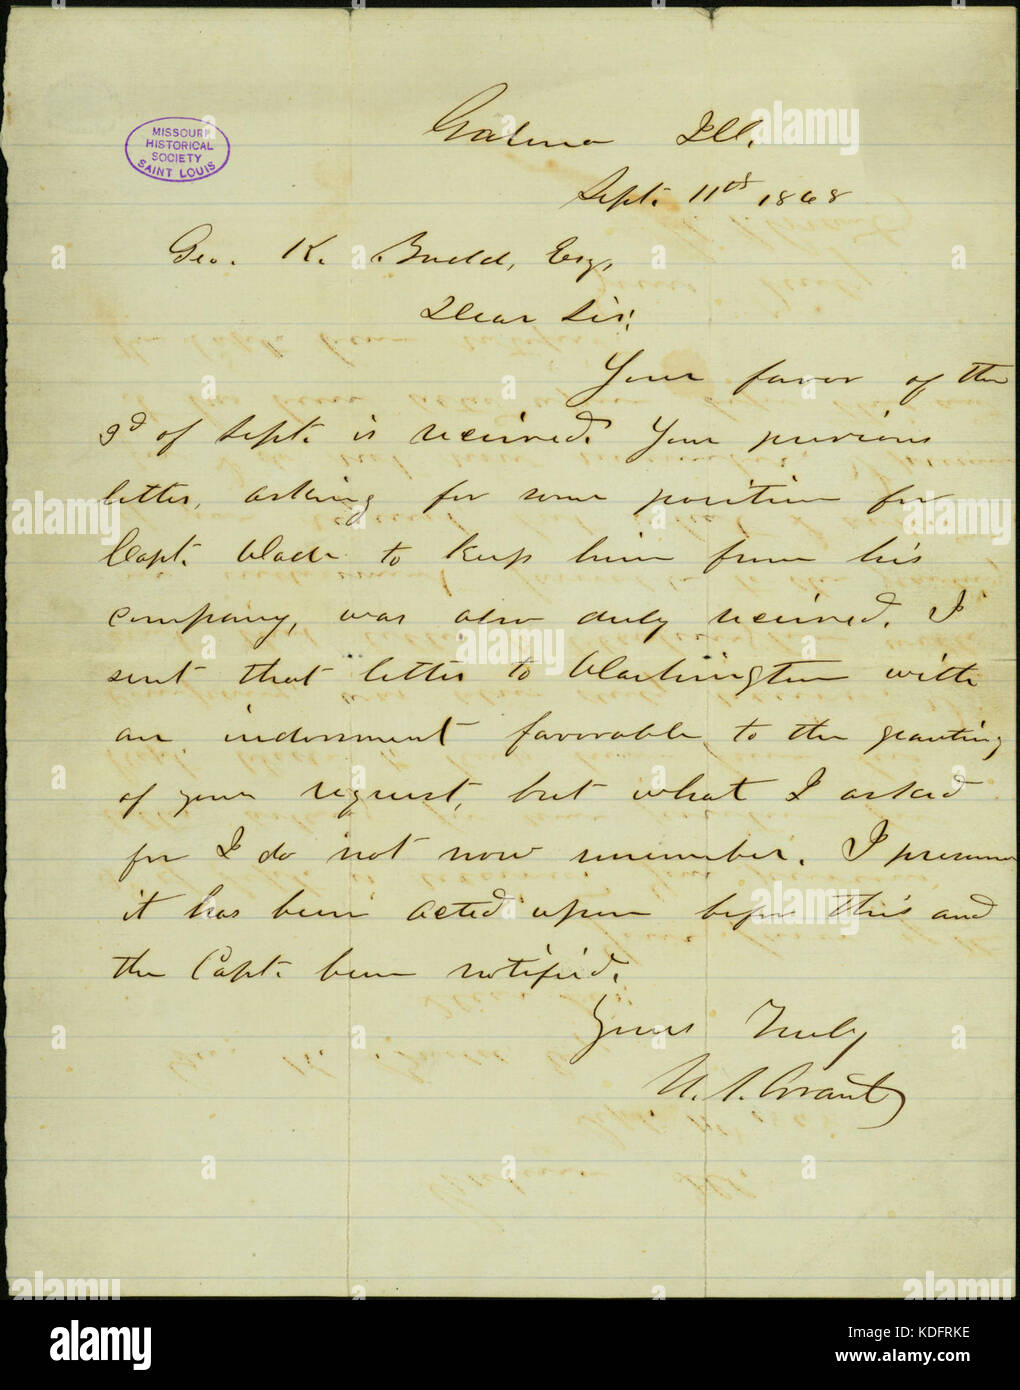 MISSOURI
HISTORICAL
SOCIETY
SAINT LOUIS
Galena Ill.
Sept. 11th 1868
Geo. K. Budd, Esq,
Dear Sir;
Your favor of the
3d of Sept. is received. Your previous
letter, asking for some position for
Capt. to keep him from his
company, was also duly received. I
sent that letter to Washington with
an indorsment favorable to the granting
of your request, but what I asked
for I do not now remember. I presume
it has been acted upon before this and
the Capt. been notified.
Yours Truly
U. S. Grant
alamy
Image ID: KDFRKE
www.alamy.com